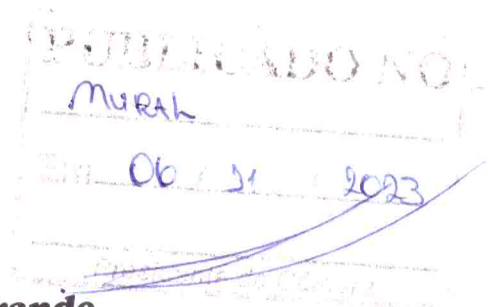 PUBLICADO NO
MURAL
Em 06 / 11 / 2023
rande